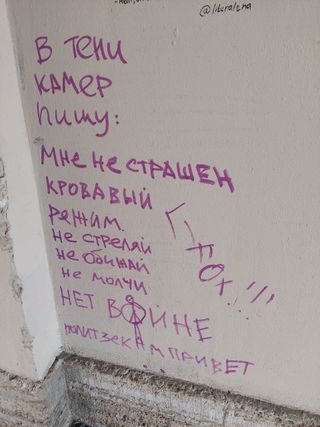 @literalina
В тени
камер
пишу:
мне не страшен
кровавый
режим.
не стреляй
не обижай
не молчи
НЕТ ВОЙНЕ
политзекам привет